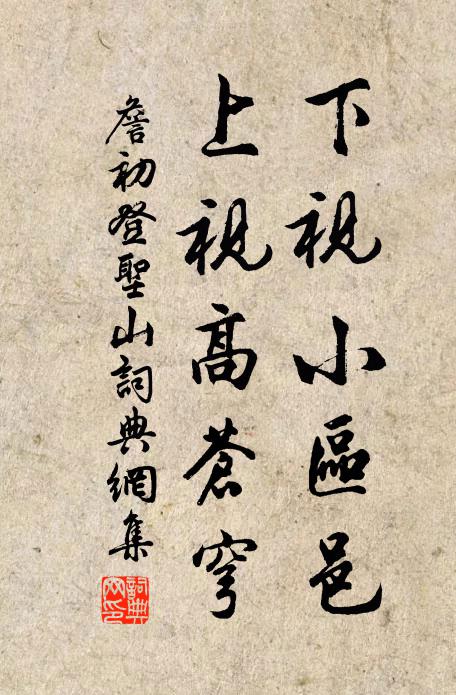 下視小區邑
上視高蒼穹
詹初登聖山詞典網集
詞典
文印